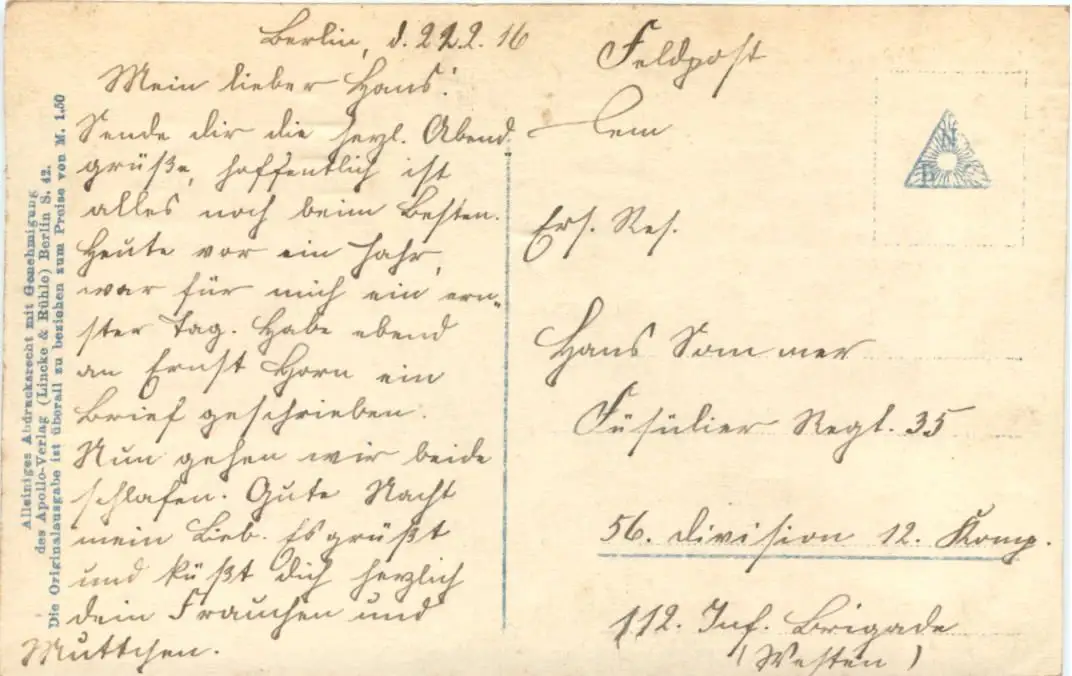 Berlin, d. 22.2.16
Mein lieber Hans!
Sende dir die herzl. Abend-
grüße, hoffentlich ist
alles noch beim Besten.
Heute vor ein Jahr,
war für mich ein ern-
ster Tag. Habe ebend
an Ernst Horn ein
Brief geschrieben.
Nun gehen wir beide
schlafen. Gute Nacht
mein Lieb. Es grüßt
und küßt dich herzlich
dein Frauchen und
Muttchen.
Feldpost
Ers. Res.
Hans Sommer
Füsülier Regt. 35
56. Division 12. Komp.
112. Inf. Brigade
(Westen)
Alleiniges Abdrucksrecht mit Genehmigung
des Apollo-Verlag (Lincke & Rühle) Berlin S. 42.
Die Originalausgabe ist überall zu beziehen zum Preise von M. 1.50
N